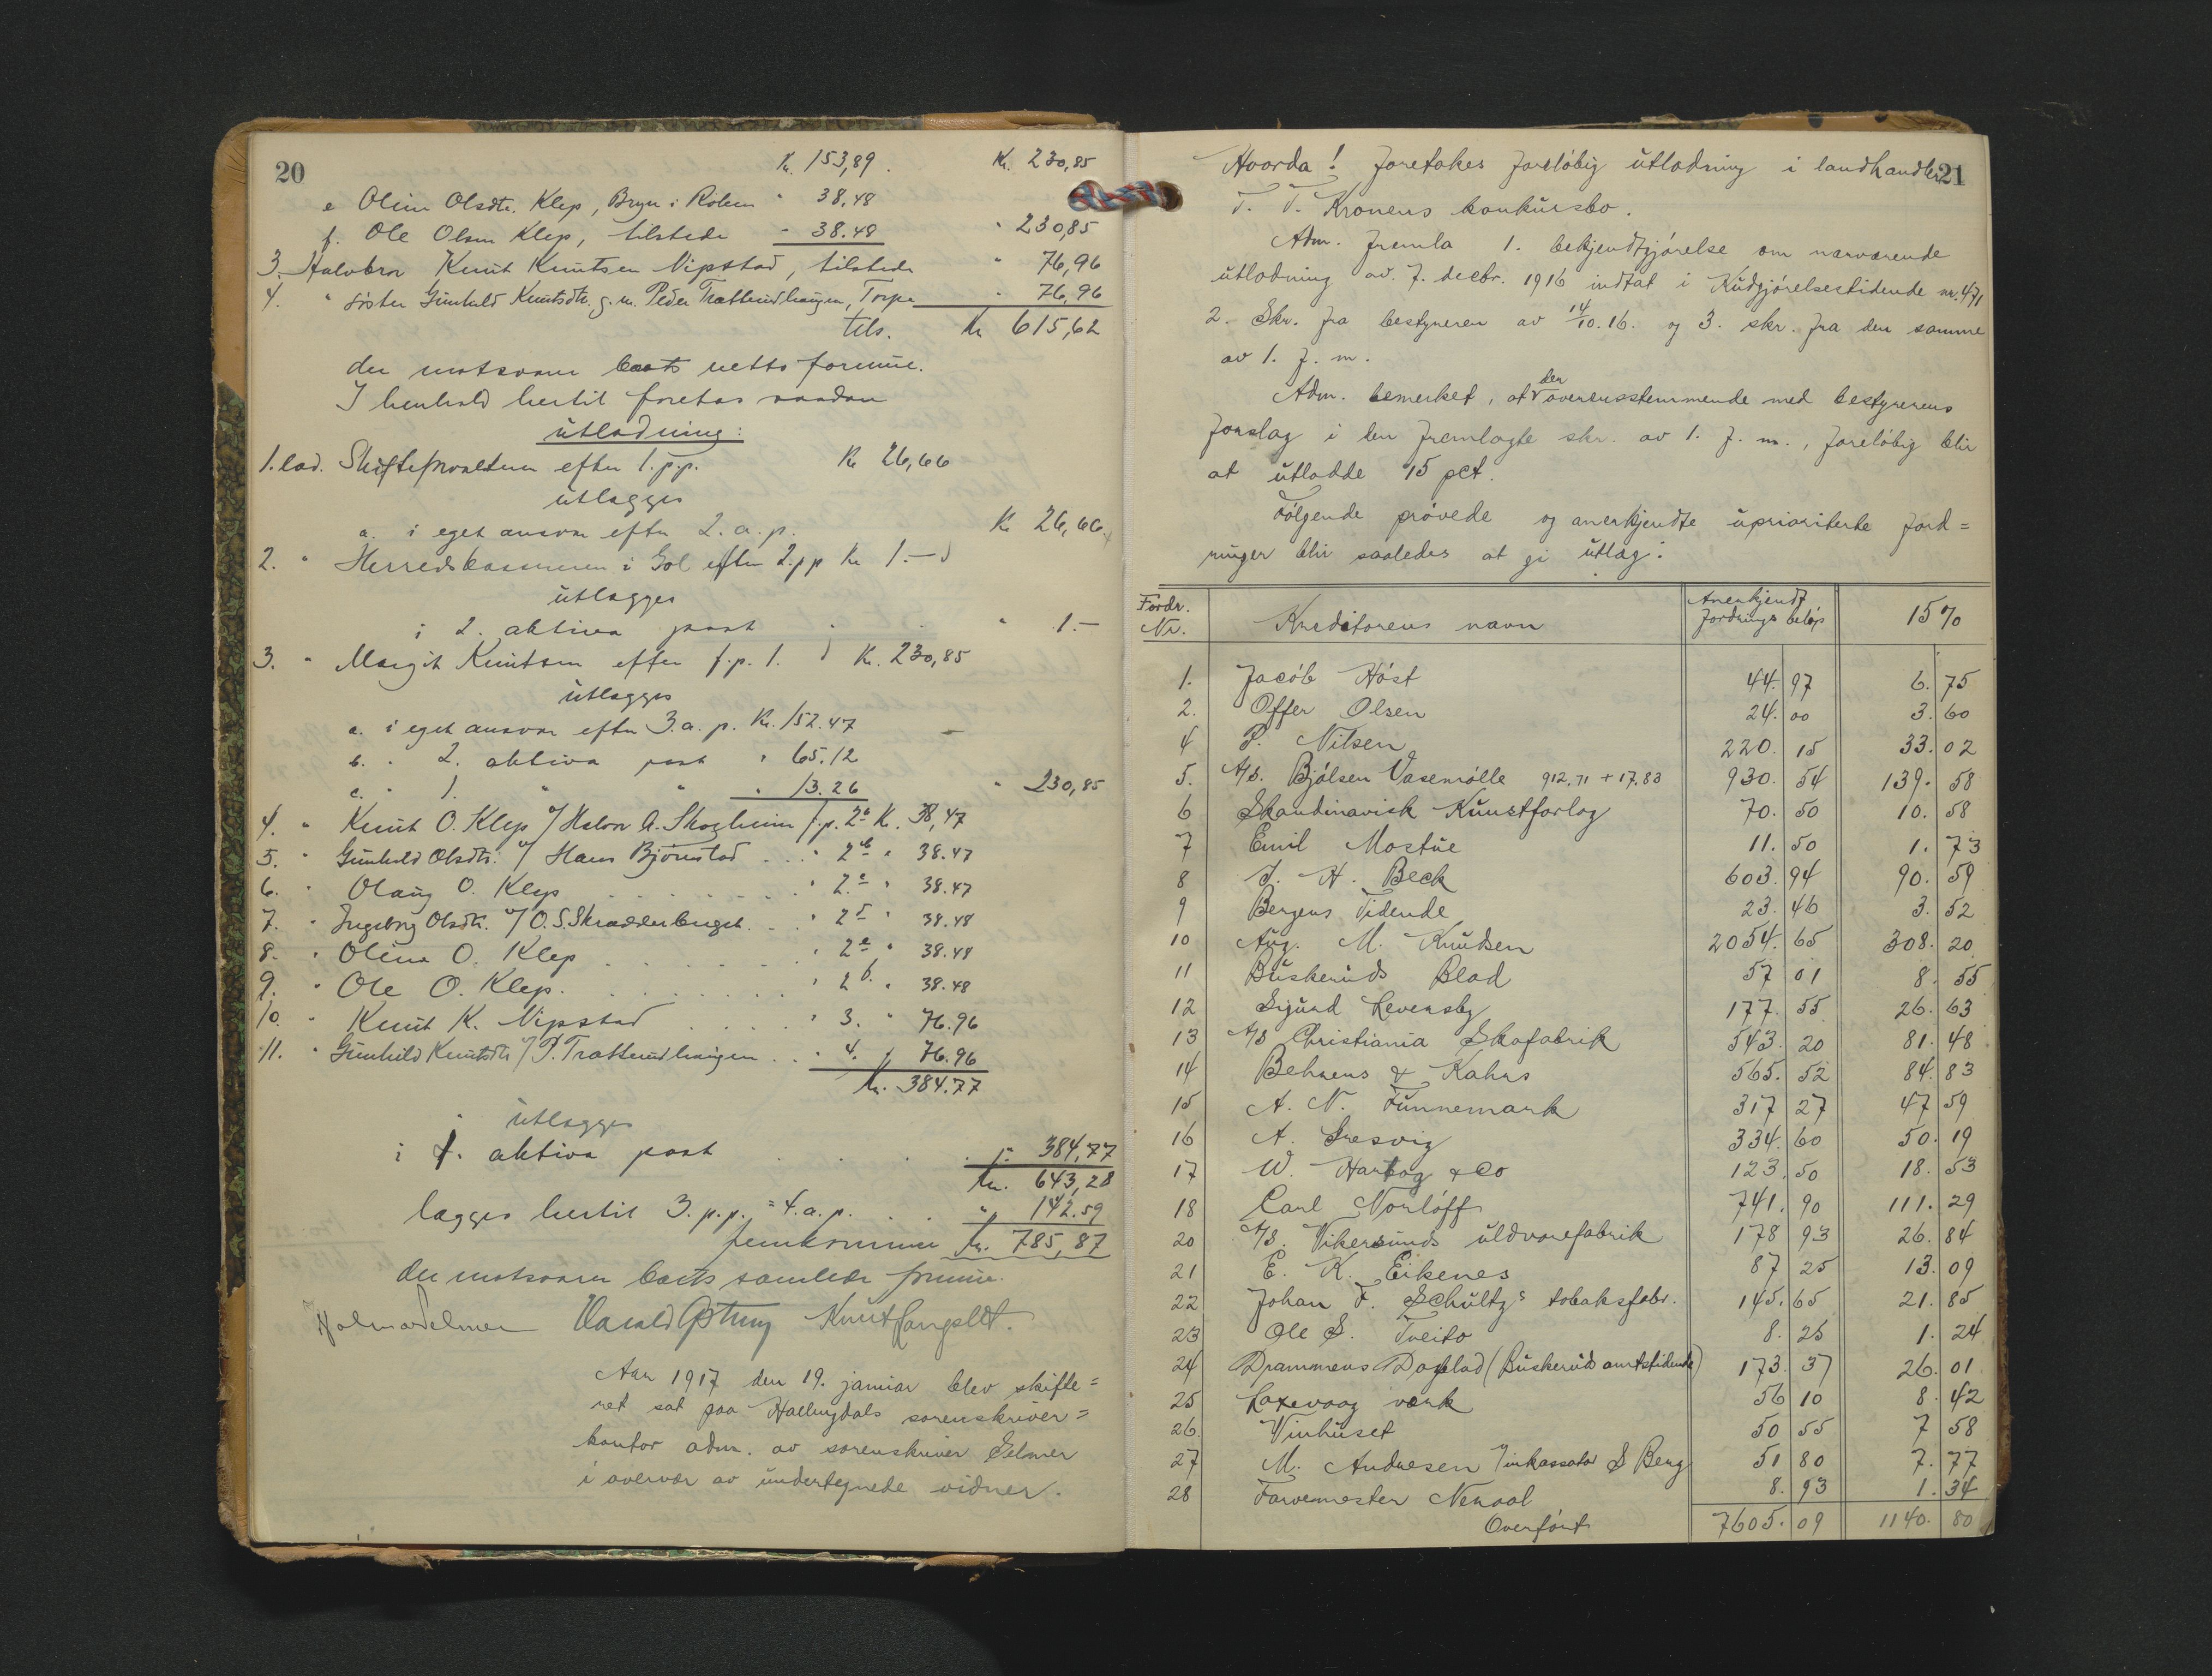 20
Kr. 153,89. Kr. 230,85
e Oline Olsdtr. Klep, Bryn i Röken " 38,48
f. Ole Olsen Klep, tilstede " 38.48 " 230,85
3. Halvbror Knut Knutsen Nipstad, tilstede " 76,96
4. " söster Gunhild Knutsdtr. g. m. Peder Trætteudhaugen, Torpe " 76,96
tils. Kr 615,62
der motsvarer boets netto formue.
I henhold hertil foretas saadan
utlodning:
1. lod. Skifteforvalteren efter 1. p.p. Kr 26,66
utlægges
a. i eget ansvar efter 2. a. p. Kr 26,66
2. " Herredskassereren i Gol efter 2. pp Kr 1.—
utlægges
i 2. aktiva post " 1.—
3. " Margit Knutsen efter f. p. 1. Kr. 230,85
utlægges
a. i eget ansvar efter 3. a. p. Kr. 152.47
b. " 2. aktiva post " 65.12
c. " 1. " " " 13.26 " 230,85
4. " Knut O. Klep v/ Halvor A. Skogheim f. p. 2a Kr. 38,47
5. " Gunhild Olsdtr. v/ Hans Björnstad . . " 2b " 38.47
6. " Olaug O. Klep " 2c " 38.47
7. " Ingeborg Olsdtr. v/ O. S. Skradderberget. . " 2d " 38.48
8. " Oline O. Klep " 2e " 38.48
9. " Ole O. Klep. " 2f. " 38.48
10. " Knut K. Nipstad " 3. " 76.96
11. " Gunhild Knutsdtr v/ P. Trætteudhaugen . . " 4. " 76.96
Kr. 384.77
utlægges
i 1. aktiva post " 384,77
Kr. 643,28
lægges hertil 3. p. p. = 4. a. p. " 142.59
fremkommer Kr. 785,87
der motsvarer boets samlede formue.
Harald Knut
Aar 1917 den 19. januar blev skifte=
ret sat paa Hallingdals sorenskriver=
kontor adm. av sorenskriver Selmer
i overvær av undertegnede vidner.
21
Hvorda! foretokes foreløbig utlodning i landhandler
T. T. Kronens konkursbo.
Adm. fremla 1. bekjendtgjørelse om nærværende
utlodning av 7. decbr. 1916 indtat i Kundgjørelsestidende nr. 471
2. Skr. fra bestyreren av 14/10. 16. og 3. skr. fra den samme
av 1. f. m.
Adm. bemerket, at der overensstemmende med bestyrerens
forslag i den fremlagte skr. av 1. f. m., foreløbig blir
at utlodde 15 pct.
Følgende prøvede og anerkjendte uprioriterte ford=
ringer blir saaledes at gi utlæg:
Fordr. Nr. Kreditorens navn Anerkjendt fordrings beløp 15%
1. Jacob Høst 44. 97 6. 75
2. Offer Olsen 24. 00 3. 60
4 P. Nilsen 220. 15 33. 02
5. A/S. Bjølsen Valsemølle 912,71 + 17.83 930. 54 139. 58
6 Skandinavisk Kunstforlag 70. 50 10. 58
7 Emil Mostue 11. 50 1. 73
8 J. H. Beck 603. 94 90. 59
9 Bergens Tidende 23. 46 3. 52
10 Aug. M. Knudsen 2054. 65 308. 20
11 Buskeruds Blad 57 01 8. 55
12 Sigurd Levensby 177. 55 26. 63
13 A/S Christiania Skofabrik 543. 20 81. 48
14 Behrens & Kahrs 565. 52 84. 83
15 A. N. Funnemark 317 27 47 59
16 A. Gresvig 334. 60 50. 19
17 W. Hartog & Co 123. 50 18. 53
18 Carl Norløff 741. 90 111. 29
20 A/S. Vikersunds uldvarefabrik 178 93 26. 84
21 E. K. Eikenes 87 25 13. 09
22 Johan F. Schultz's tobaksfabr. 145. 65 21. 85
23 Ole S. Tveito 8. 25 1. 24
24 Drammens Dagblad (Buskeruds amtstidende) 173. 37 26. 01
25 Laxevaag værk 56 10 8. 42
26. Vinhuset 50 55 7 58
27 M. Andresen v/ inkassator S Berg 51 80 7. 77
28 Farvemester Nekaal 8. 93 1. 34
Overført 7605. 09 1140. 80